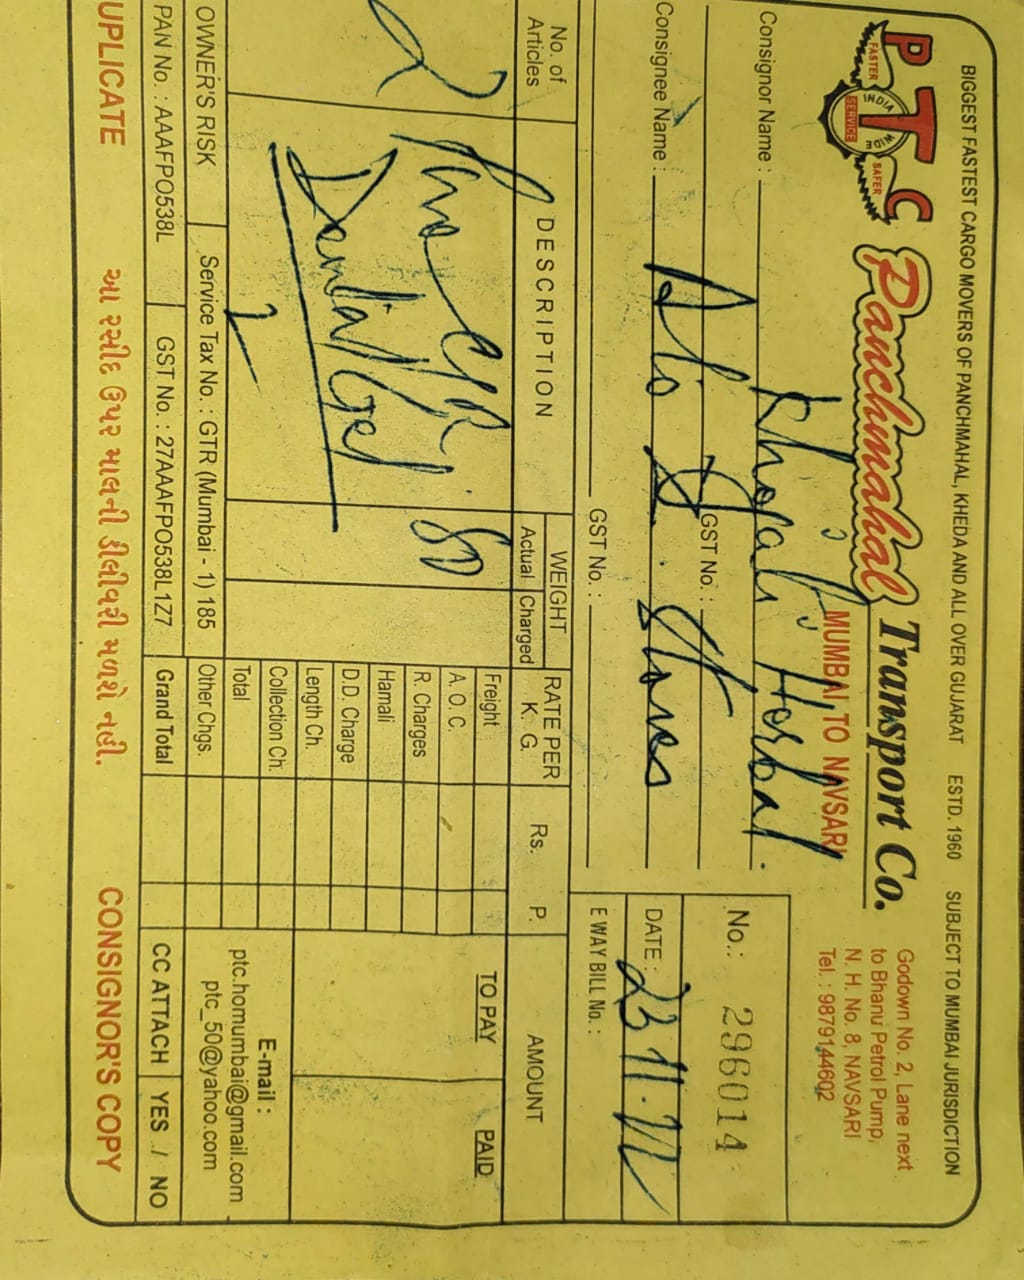 BIGGEST FASTEST CARGO MOVERS OF PANCHMAHAL, KHEDA AND ALL OVER GUJARAT ESTD. 1960 SUBJECT TO MUMBAI JURISDICTION
PTC
FASTER INDIA WIDE SAFER
SERVICE
Panchmahal Transport Co.
MUMBAI TO NAVSARI
Godown No. 2, Lane next
to Bhanu Petrol Pump,
N. H. No. 8, NAVSARI
Tel. : 9879144602
Consignor Name : Khojati Herbal
GST No. :
No.: 296014
Consignee Name : Stores
DATE : 23 11.22
GST No. :
E WAY BILL No. :
No. of Articles DESCRIPTION WEIGHT Actual Charged RATE PER K. G. Rs. P. AMOUNT
2 50
Dental Gel
2
Freight TO PAY PAID
A. O. C.
R. Charges
Hamali
D.D. Charge
Length Ch.
Collection Ch.
Total
Other Chgs.
E-mail :
ptc.homumbai@gmail.com
ptc_50@yahoo.com
OWNER'S RISK Service Tax No. : GTR (Mumbai - 1) 185
PAN No. : AAAFPO538L GST No. : 27AAAFPO538L1Z7 Grand Total CC ATTACH YES / NO
UPLICATE આ રસીદ ઉપર માલની ડીલીવરી મળશે નહી. CONSIGNOR'S COPY